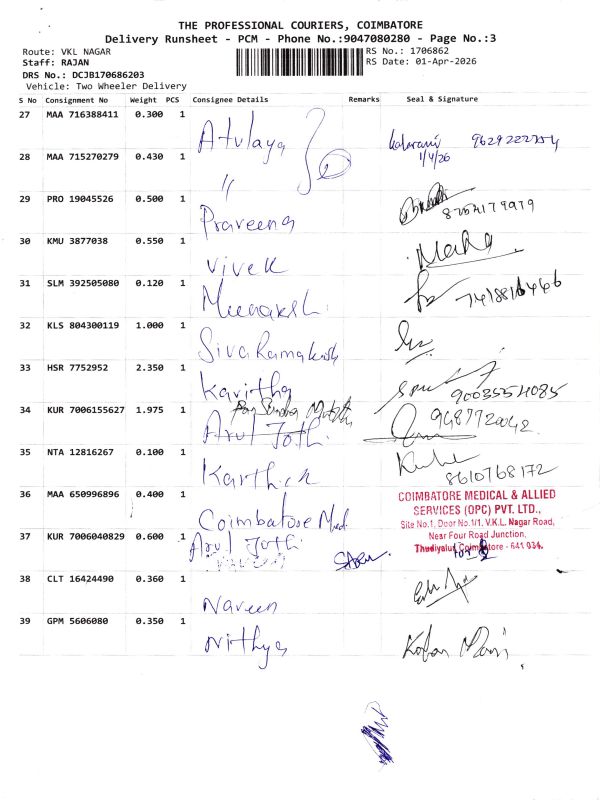 THE PROFESSIONAL COURIERS, COIMBATORE
Delivery Runsheet - PCM - Phone No.:9047080280 - Page No.:3
Route: VKL NAGAR
RS No.: 1706862
Staff: RAJAN
RS Date: 01-Apr-2026
DRS No.: DCJB170686203
Vehicle: Two Wheeler Delivery
S No Consignment No Weight PCS Consignee Details Remarks Seal & Signature
27 MAA 716388411 0.300 1 Atulaya
9629222754
1/4/26
28 MAA 715270279 0.430 1 "
29 PRO 19045526 0.500 1 Praveena
30 KMU 3877038 0.550 1 Vivek
31 SLM 392505080 0.120 1 Meenakshi
32 KLS 804300119 1.000 1 SivaRamakrish
33 HSR 7752952 2.350 1 Kavitha
34 KUR 7006155627 1.975 1 Arul Joth
9487720042
35 NTA 12816267 0.100 1 Karthick
8610768172
36 MAA 650996896 0.400 1 Coimbatore Med
COIMBATORE MEDICAL & ALLIED
SERVICES (OPC) PVT. LTD.,
Site No.1, Door No.1/1, V.K.L. Nagar Road,
Near Four Road Junction,
Thudiyalur, Coimbatore - 641 034.
37 KUR 7006040829 0.600 1 Arul Joth
38 CLT 16424490 0.360 1 Naveen
39 GPM 5606080 0.350 1 Nithya